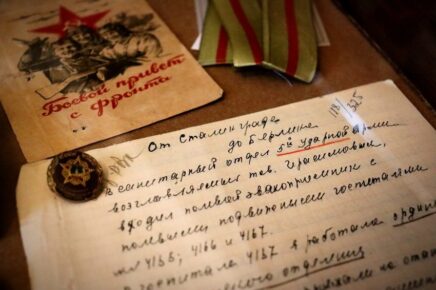 Боевой привет
с фронта
118/325
От Сталинграда
до Берлина
В санитарный отдел 5й ударной армии
возглавляемых тов. Грасимовым,
входил полевой эвакоприемник с
полевыми подвижными госпиталями
4166 и 4167.
госпитале 4167 я работала
отделения